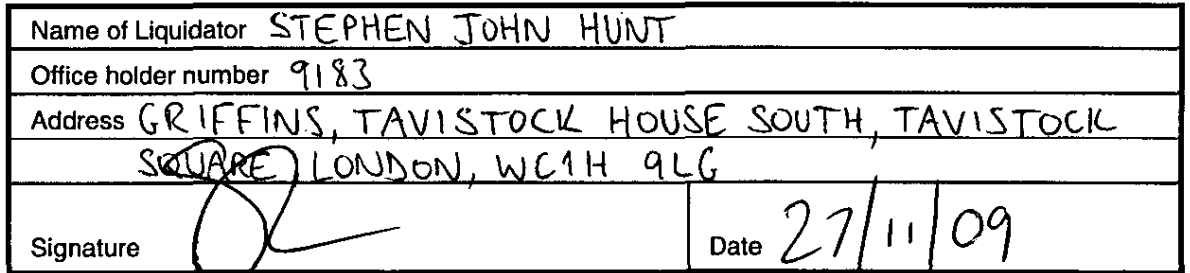 Name of Liquidator STEPHEN JOHN HUNT
Office holder number 9183
Address GRIFFINS, TAVISTOCK HOUSE SOUTH, TAVISTOCK
SQUARE LONDON, WC1H 9LG
Signature Date 27/11/09